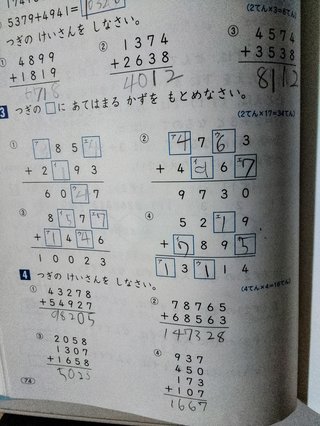 5379+4941=10320
(2てん×3=6てん)
つぎの けいさんを しなさい。
① ② ③
4899 1374 4574
+1819 +2638 +3538
6718 4012 8112
3 つぎの□に あてはまる かずを もとめなさい。
(2てん×17=34てん)
① ②
854 4763
+2193 +4967
6047 9730
③ ④
8577 5219
+1446 +7895
10023 13114
4 つぎの けいさんを しなさい。
(4てん×4=16てん)
① ②
43278 78765
+54927 +68563
98205 147328
③ ④
2058 937
1307 450
+1658 173
5023 +107
1667
74